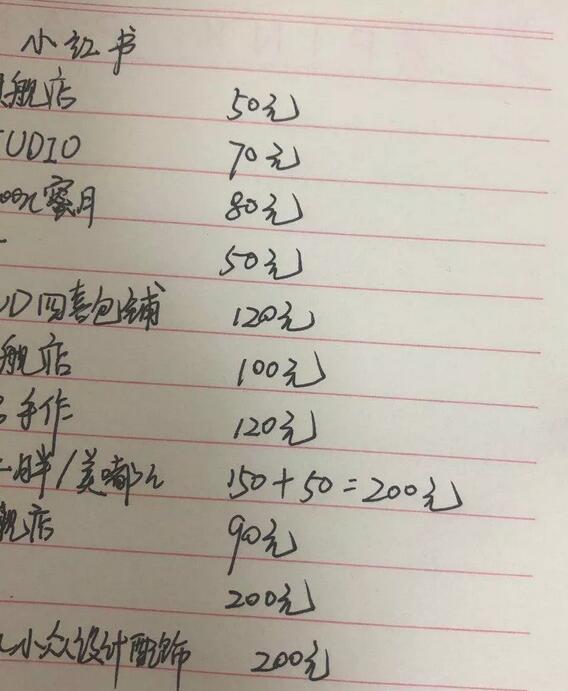 小红书
舰店 50元
UDIO 70元
蜜月 80元
50元
D四喜包铺 120元
舰店 100元
手作 120元
胖/美嘟 150+50=200元
舰店 90元
200元
小众设计配饰 200元